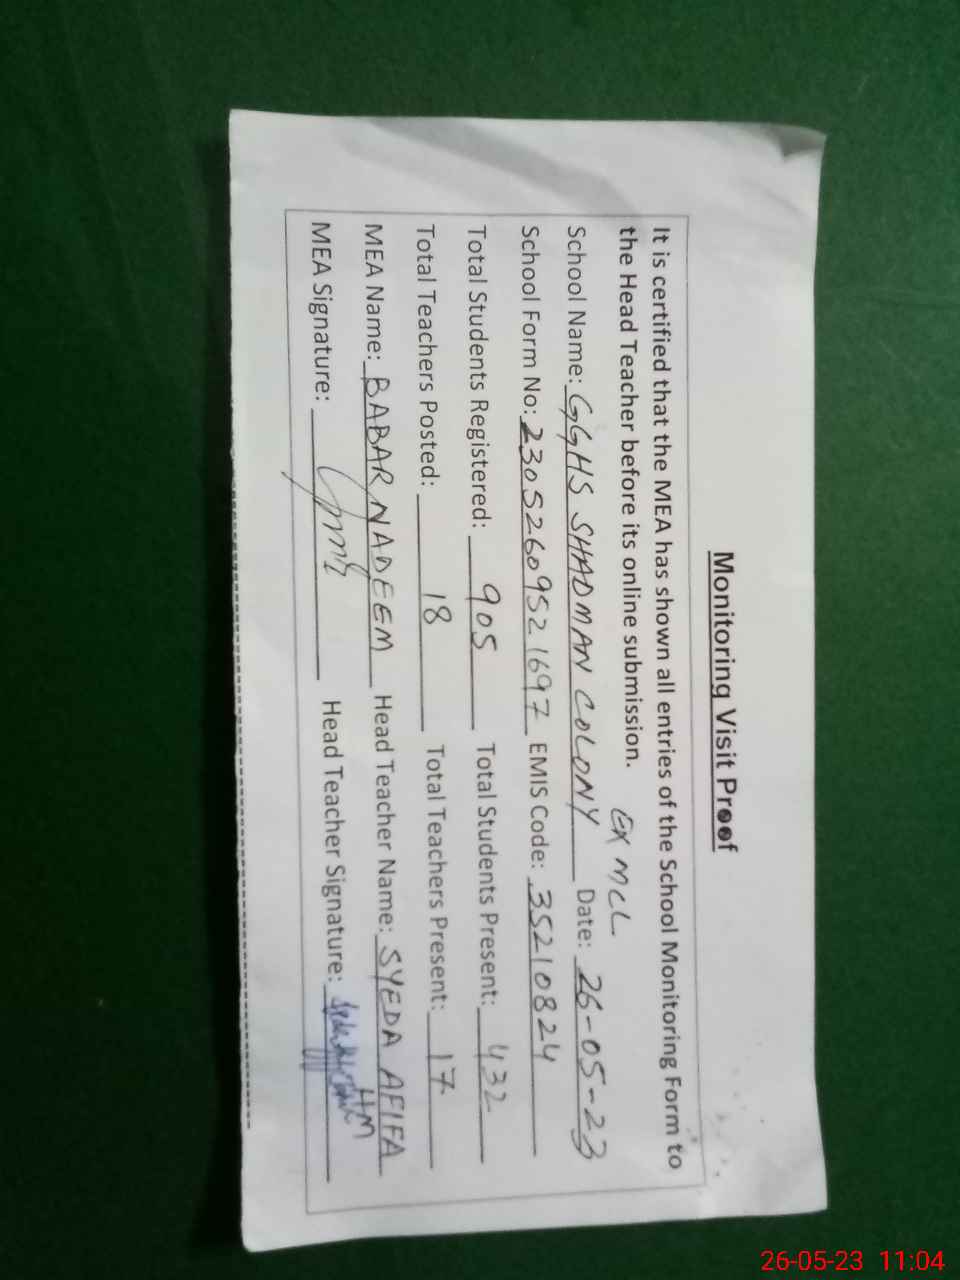 Monitoring Visit Proof
It is certified that the MEA has shown all entries of the School Monitoring Form to
the Head Teacher before its online submission.
EX MCL
School Name: GGHS SHADMAN COLONY Date: 26-05-23
School Form No: 23052609521697 EMIS Code: 35210824
Total Students Registered: 905 Total Students Present: 432
Total Teachers Posted: 18 Total Teachers Present: 17
MEA Name: BABAR NADEEM Head Teacher Name: SYEDA AFIFA
HM
MEA Signature: Head Teacher Signature:
26-05-23 11:04